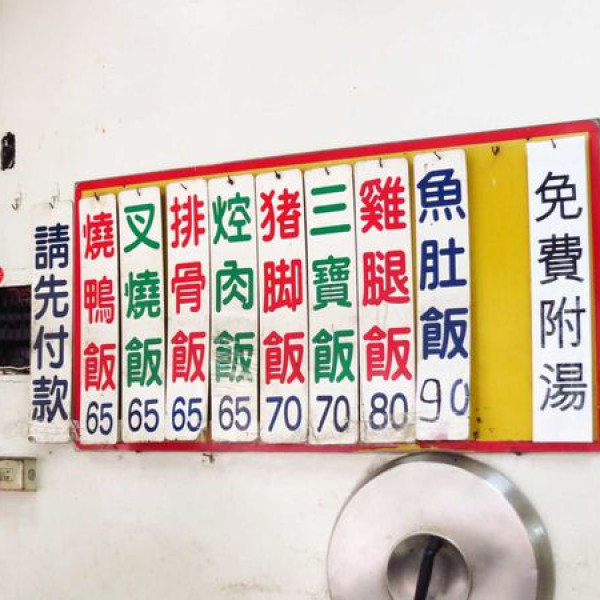 請先付款
燒鴨飯 65
叉燒飯 65
排骨飯 65
焢肉飯 65
猪脚飯 70
三寶飯 70
雞腿飯 80
魚肚飯 90
免費附湯